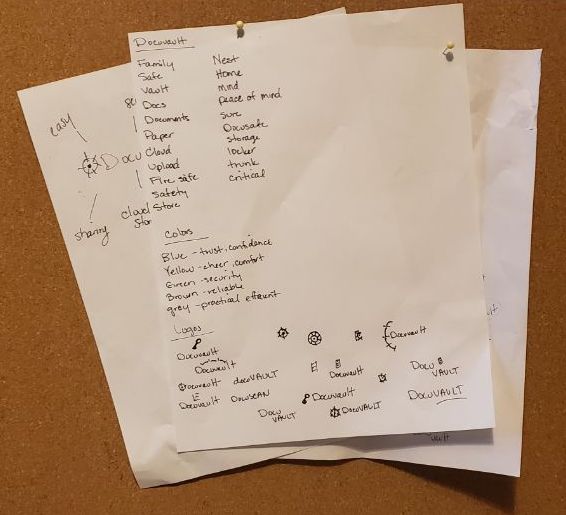 Docuvault
Family
Safe
Vault
Docs
Documents
Paper
Cloud
Upload
Fire safe
Safety
Store
Nest
Home
mind
peace of mind
sure
Docusafe
storage
locker
trunk
critical
Colors
Blue - trust, confidence
Yellow - cheer, comfort
Green - security
Brown - reliable
grey - practical efficient
Logos
Docuvault
Docuvault
Docuvault
docuVAULT
Docuvault
DocuSCAN
Docu
VAULT
Docuvault
Docuvault
DocuVAULT
Docuvault
Docu
VAULT
DocuVAULT
easy
Docu
sharing
cloud